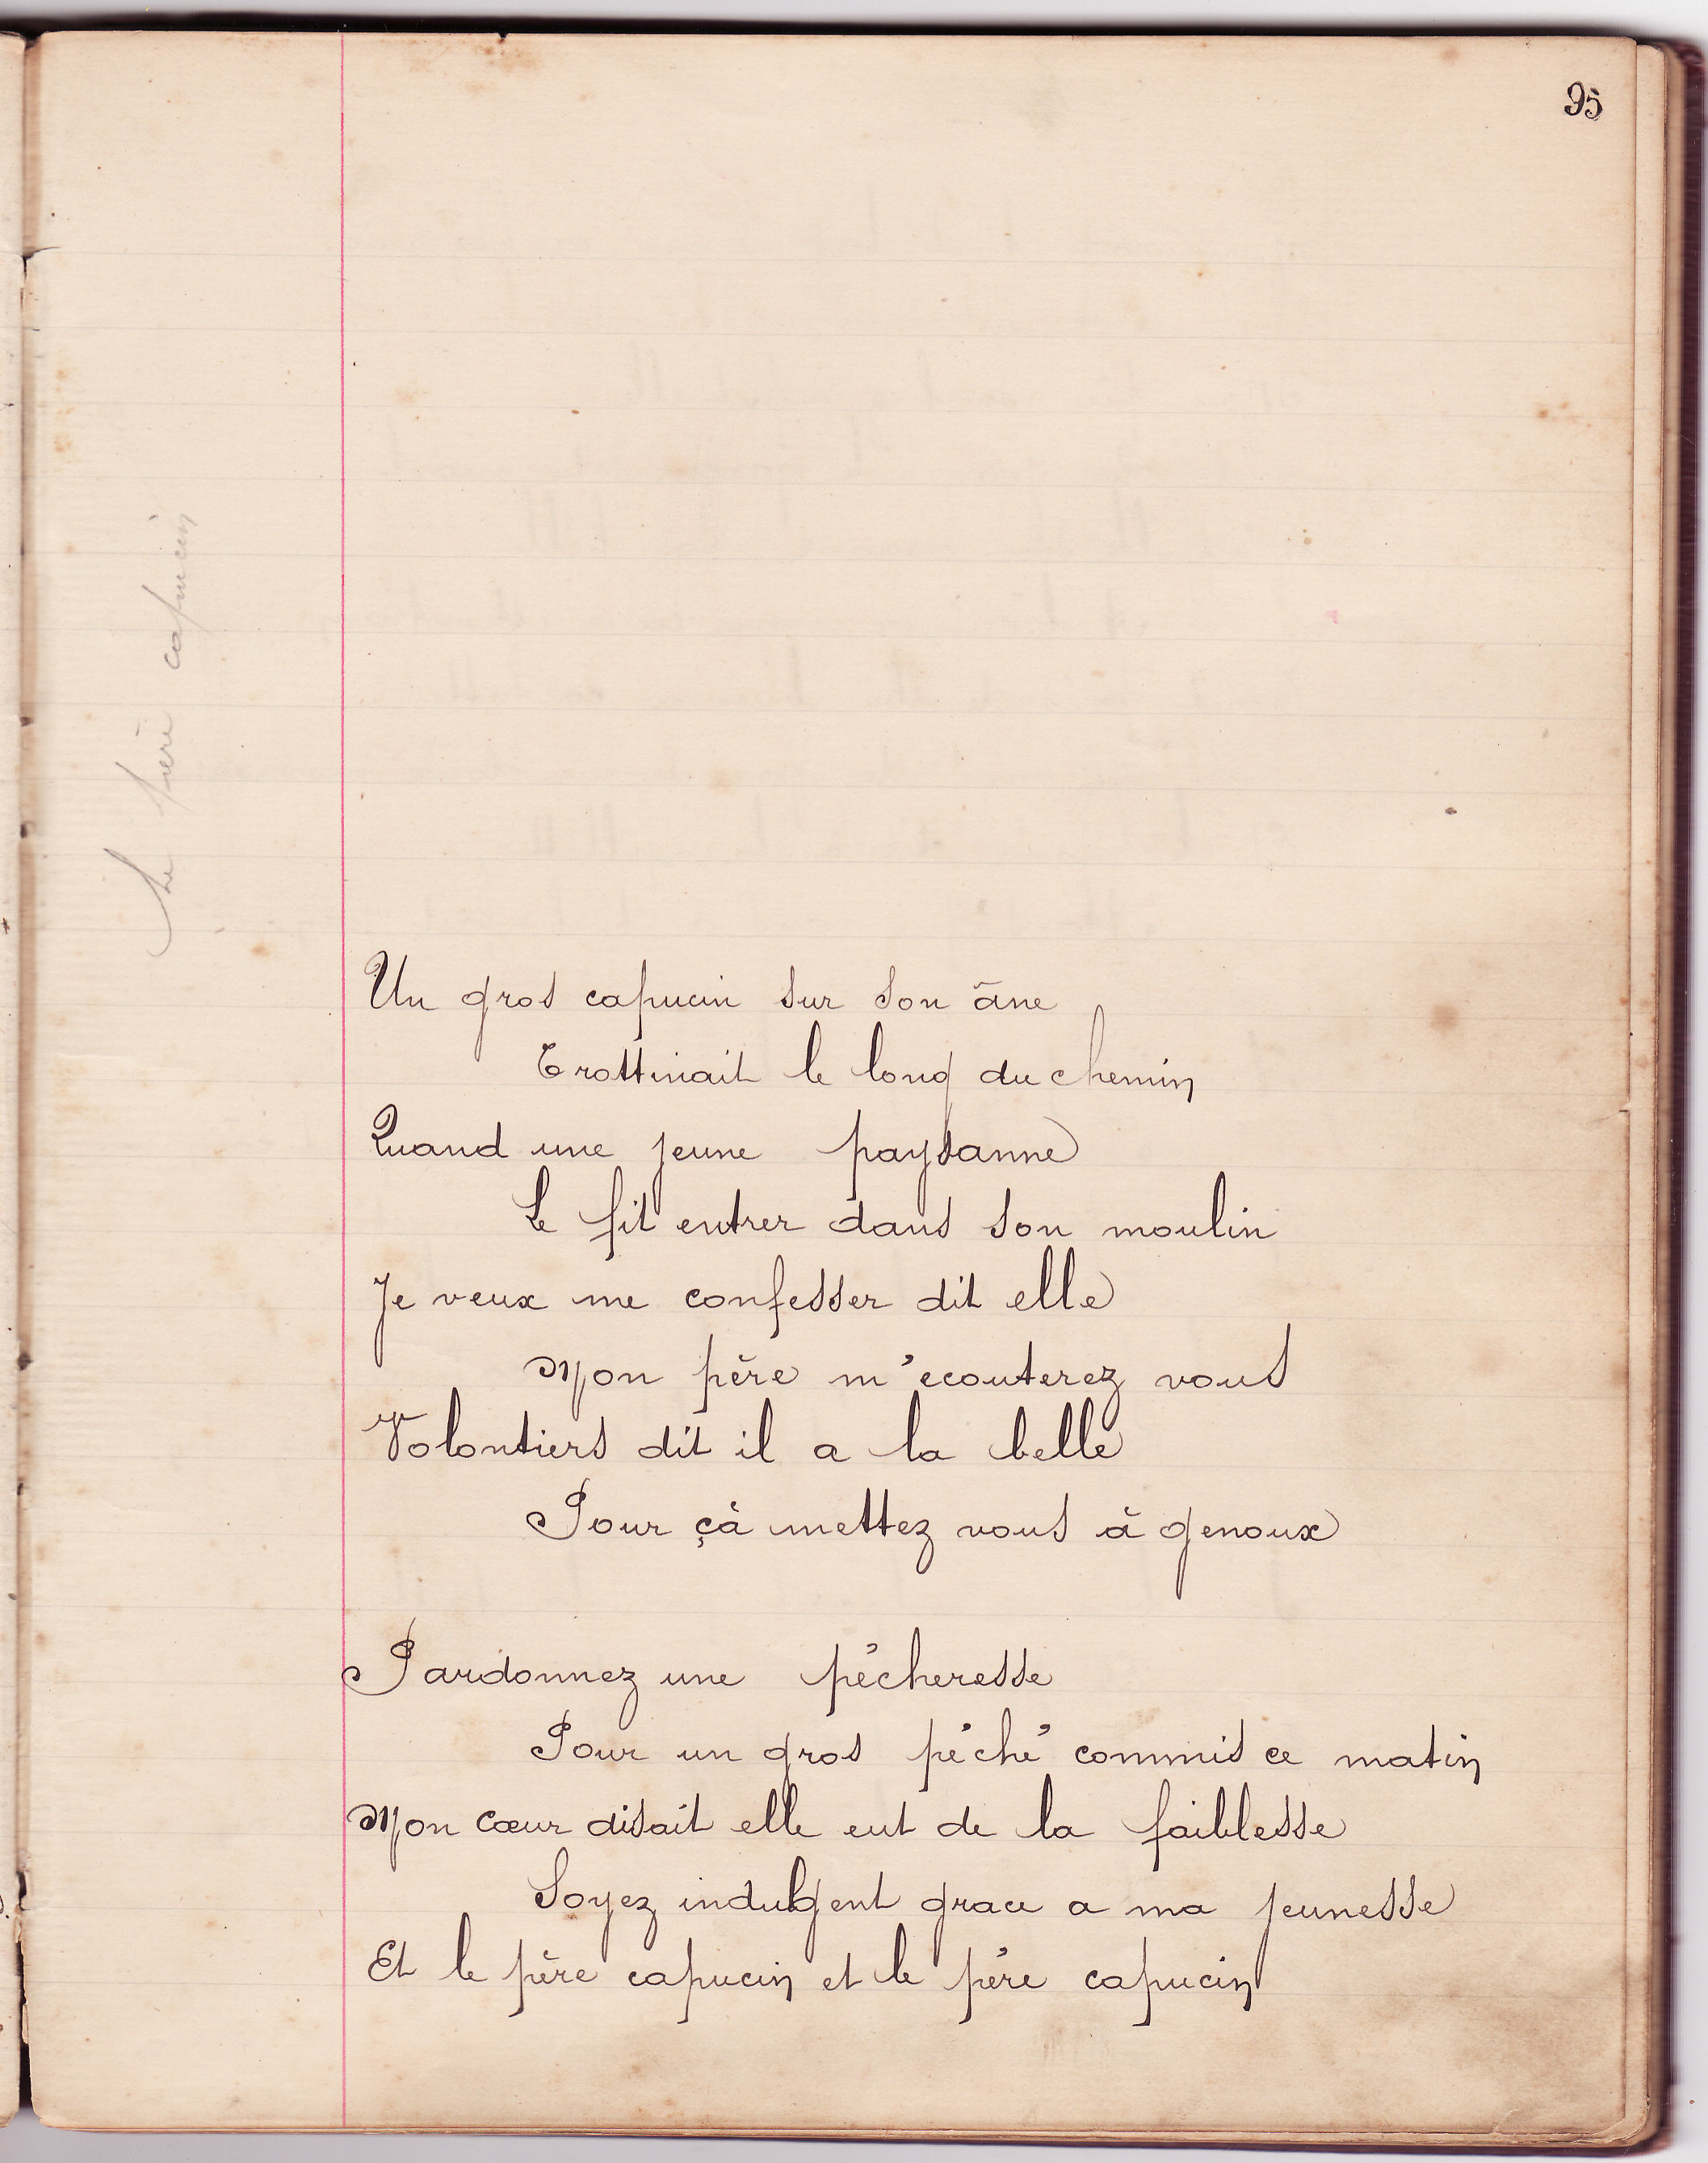 95
Le père capucin
Un gros capucin sur son âne
Trottinait le long du chemin
Quand une jeune paysanne
Le fit entrer dans son moulin
Je veux me confesser dit elle
Mon père m'ecouterez vous
Volontiers dit il a la belle
Pour çà mettez vous à genoux
Pardonnez une pécheresse
Pour un gros péché commis ce matin
Mon cœur disait elle eut de la faiblesse
Soyez indulgent grace a ma jeunesse
Et le père capucin et le père capucin